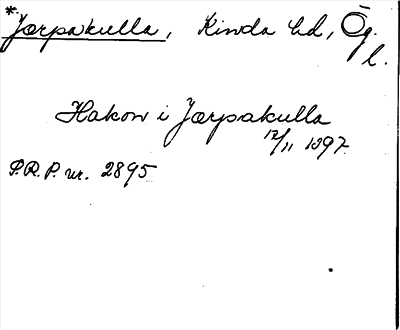 * Jærpakulla, Kinda hd, Ög.
l.
Hakon i Jærpakulla
12/11 1397.
S.R.P. nr. 2895